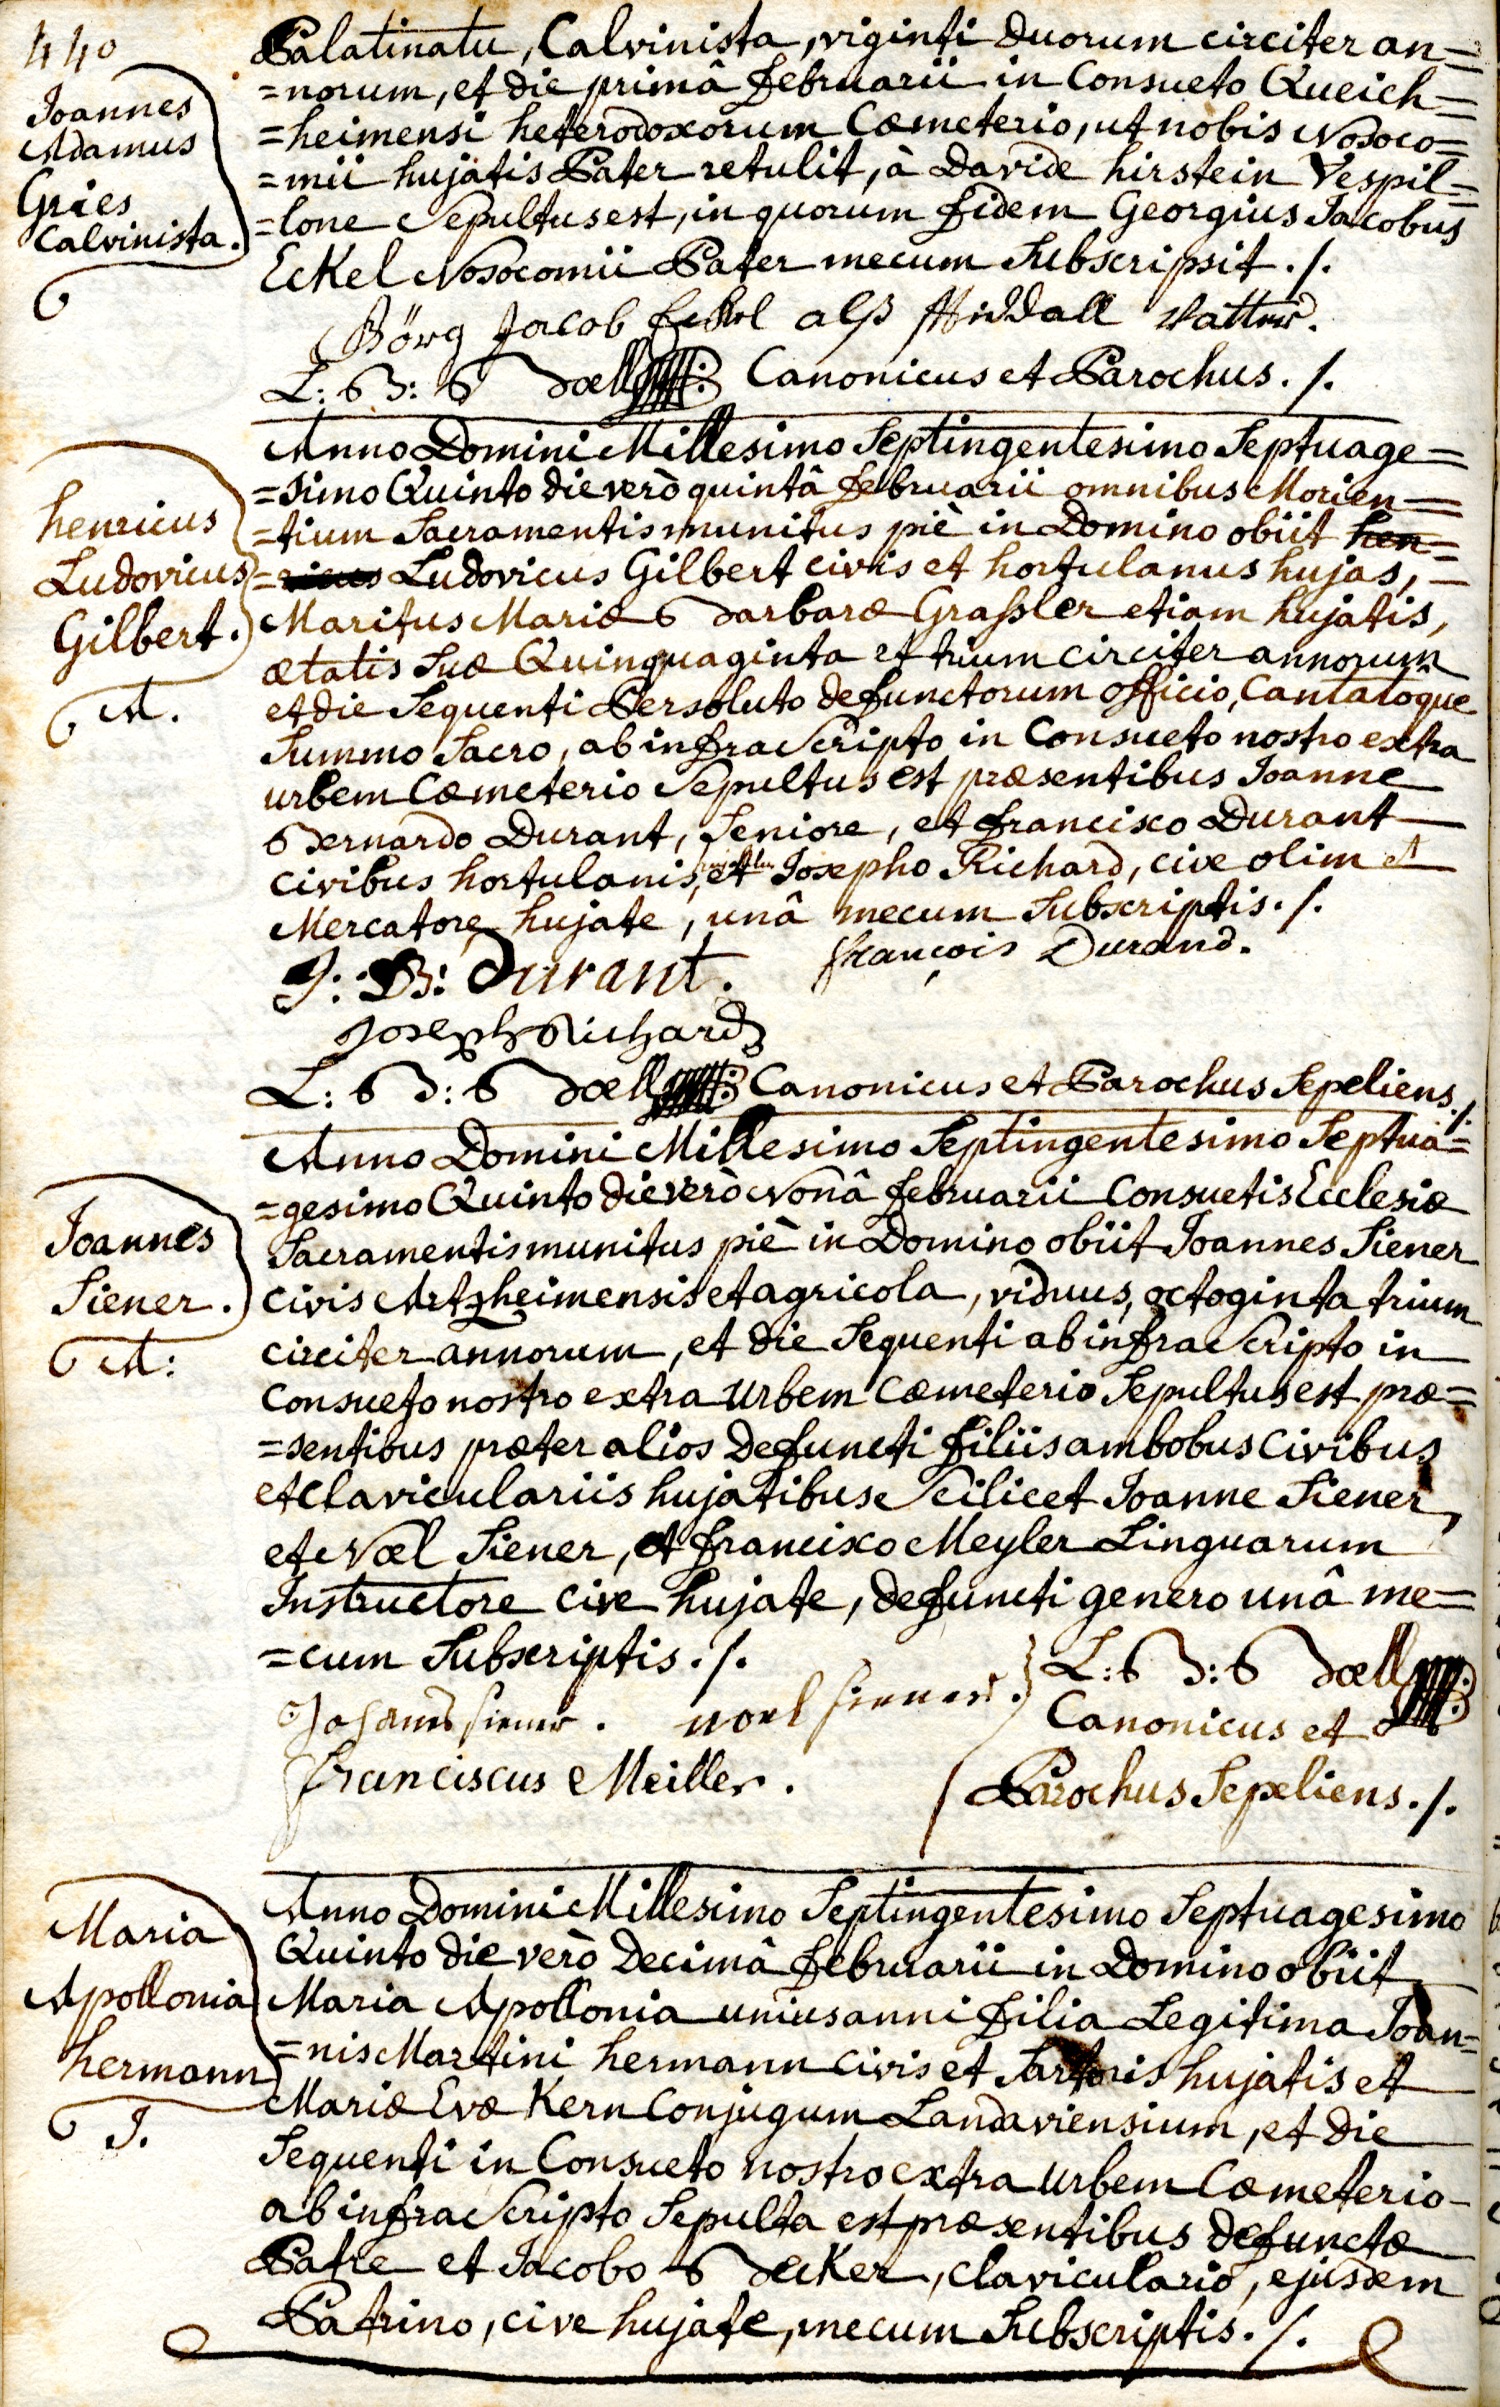 440
Joannes
Adamus
Gries
Calvinista.
Palatinatu, Calvinista, viginti duorum circiter an=
=norum, et die primâ februarii in Consueto Queich=
=heimensi heterodoxorum Cœmeterio, ut nobis Nosoco=
=mii hujatis Pater retulit, à Davide hirstein Vespil=
=lone Sepultus est, in quorum fidem Georgius Jacobus
Eckel Nosocomii Pater mecum Subscripsit./.
Görg Jacob Eckel alß Vatter.
L: B: Bællß: Canonicus et Parochus./.
henricus
Ludovicus
Gilbert.
A.
Anno Domini Millesimo Septingentesimo Septuage=
=simo Quinto die verò quintâ februarii omnibus Morien=
=tium Sacramentis munitus piè in Domino obiit hen=
=ricus Ludovicus Gilbert civis et hortulanus hujas,
Maritus Mariæ Barbaræ Graßler etiam hujatis,
ætatis Suæ Quinquaginta et trium circiter annorum
et die Sequenti Persoluto defunctorum officio, Cantatoque
Summo Sacro, ab infra Scripto in Consueto nostro extra
urbem Cœmeterio Sepultus est præsentibus Joanne
Bernardo Durant, Seniore, et francisco Durant
civibus hortulanis, hujatibus et Josepho Richard, cive olim et
Mercatore hujate, unâ mecum Subscriptis./.
J: B: Durant. françois Durand.
Joseph Richard
L: B: Bællß: Canonicus et Parochus Sepeliens./.
Joannes
Siener.
A:
Anno Domini Millesimo Septingentesimo Septua=
=gesimo Quinto die verò Nonâ februarii Consuetis Ecclesiæ
Sacramentis munitus piè in Domino obiit Joannes Siener
civis Artzheimensis et agricola, viduus, octoginta trium
circiter annorum, et die Sequenti ab infra Scripto in
Consueto nostro extra urbem Cœmeterio Sepultus est præ=
=sentibus præter alios defuncti filiis ambobus civibus
et claviculariis hujatibus Scilicet Joanne Siener,
et Noel Siener, et francisco Meyler Linguarum
Instructore cive hujate, defuncti genero unâ me=
=cum Subscriptis./.
Johannes siener. noel siener.
franciscus Meiller.
L: B: Bællß:
Canonicus et
Parochus Sepeliens./.
Maria
Apollonia
hermann
J.
Anno Domini Millesimo Septingentesimo Septuagesimo
Quinto die verò Decimâ februarii in Domino obiit
Maria Apollonia unius anni filia Legitima Joan=
=nis Martini hermann civis et Sartoris hujatis et
Mariæ Evæ Kern Conjugum Landaviensium, et die
Sequenti in Consueto nostro extra urbem Cœmeterio
ab infra Scripto Sepulta est præsentibus defunctæ
Patre et Jacobo Becker, claviculario, ejusdem
Patrino, cive hujate, mecum Subscriptis./.